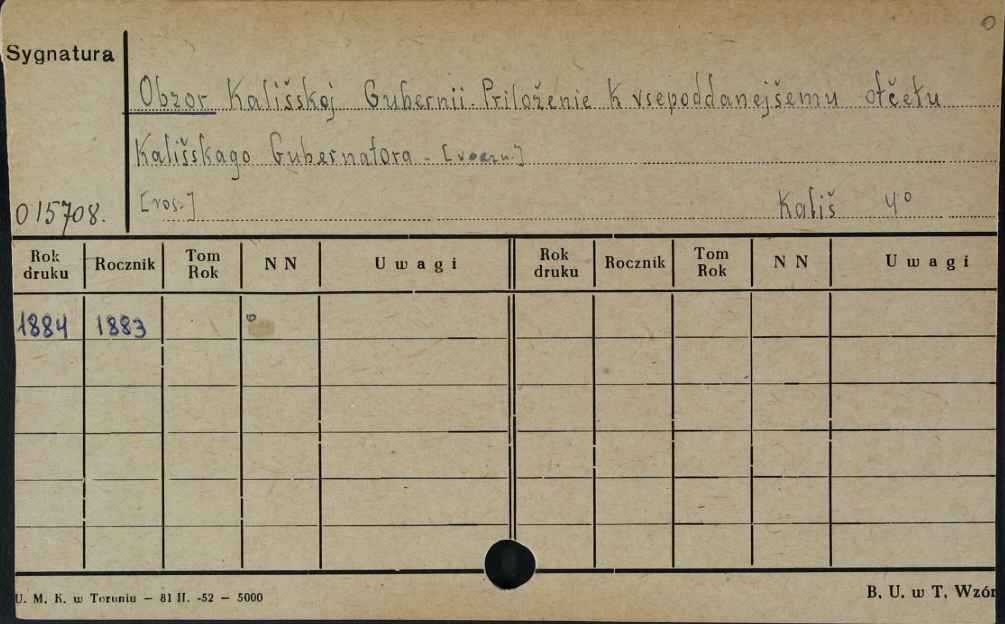 0
Sygnatura
Obzor Kališskoj Gubernii. Priloženie k vsepoddanejšemu otčetu
Kališskago Gubernatora.
[ros.]
Kališ 4°
015708.
Rok druku Rocznik Tom Rok N N Uwagi Rok druku Rocznik Tom Rok N N Uwagi
1884 1883 0
U. M. K. w Toruniu – 81 II. -52 – 5000
B. U. w T. Wzór